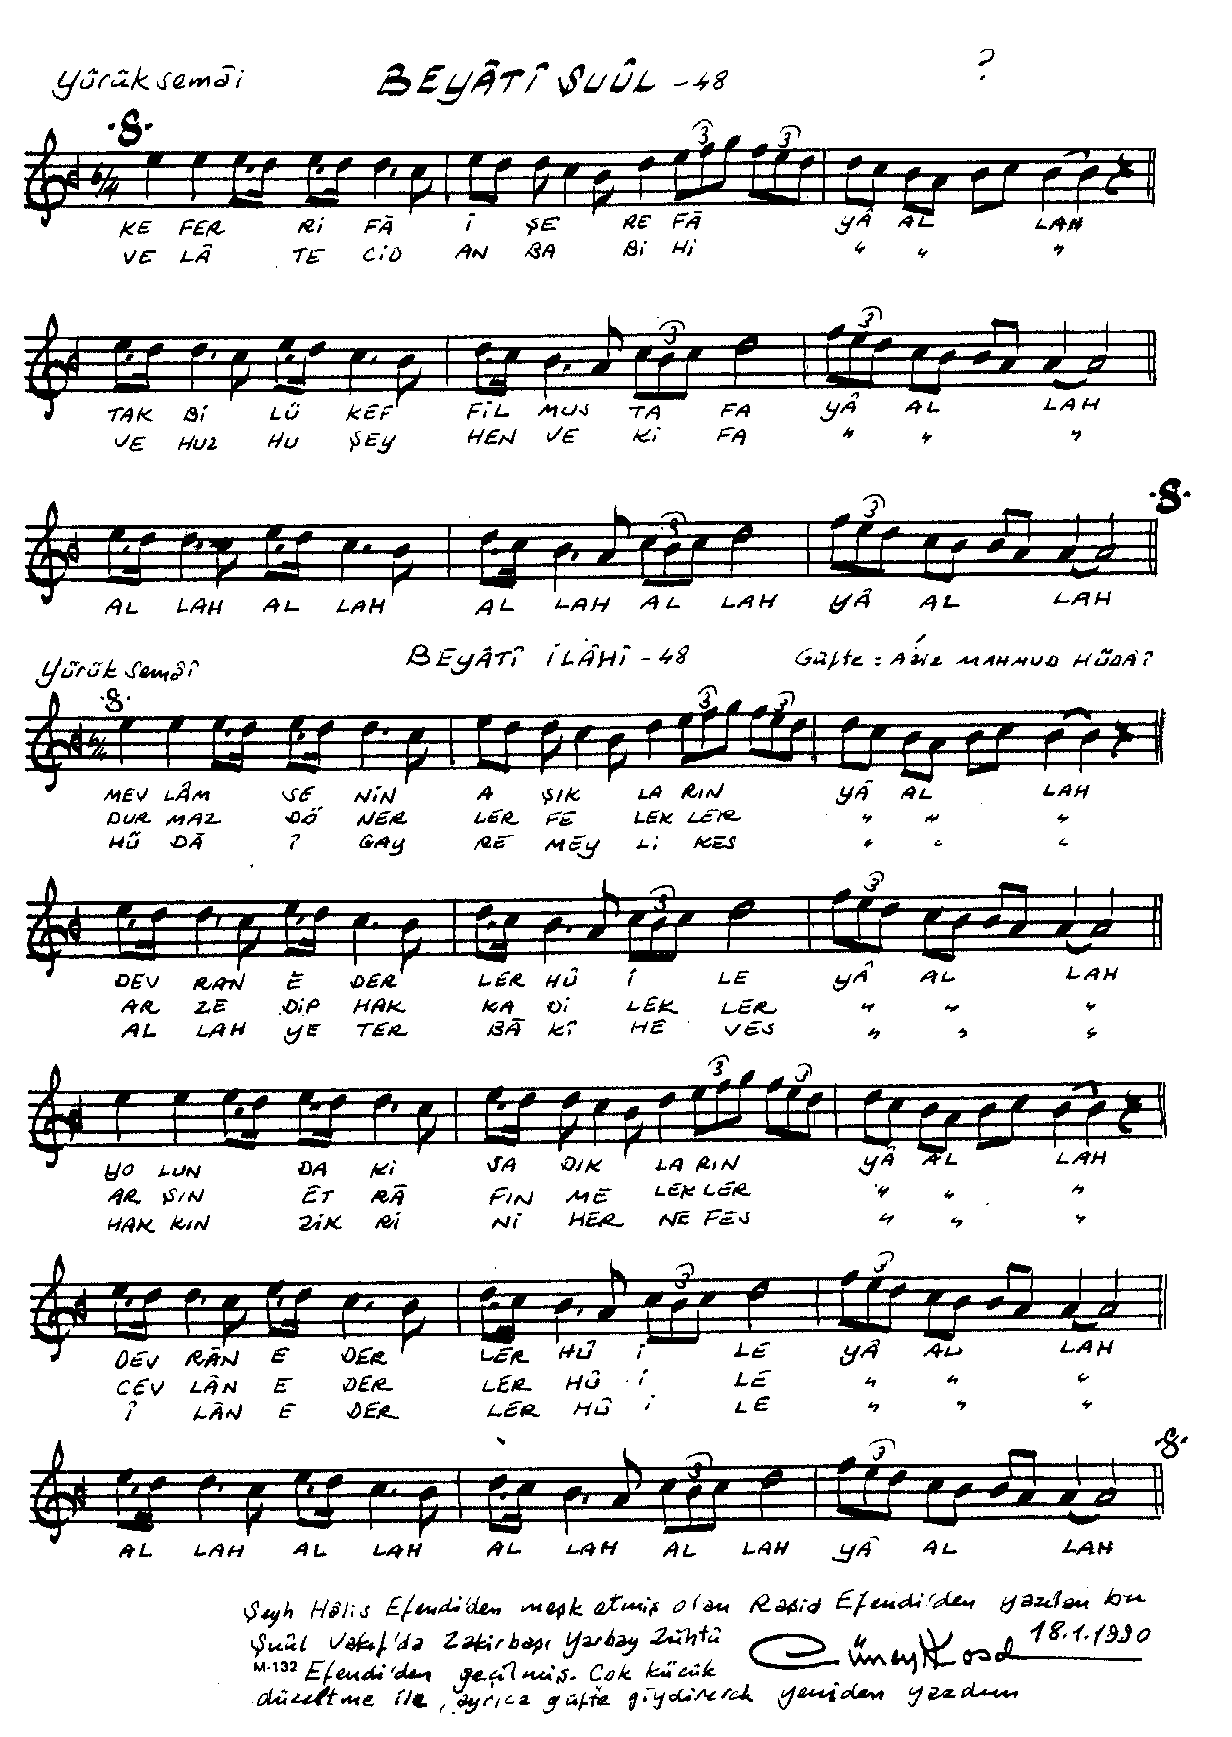 Yürük semâi BEYÂTÎ ŞUÛL - 48 ?
6/4 3 3
KE FER Rİ FÂ Î ŞE RE FÂ YÂ AL LAH
VE LÂ TE CİD AN BA Bİ Hİ " " "
3 3
TAK Bİ LÛ KEF FİL MUS TA FA YÂ AL LAH
VE HUZ HU ŞEY HEN VE Kİ FA " " "
3 3
AL LAH AL LAH AL LAH AL LAH YÂ AL LAH
Yürük semâî BEYÂTÎ İLÂHÎ - 48 Güfte : Aziz MAHMUD HÜDÂÎ
6/4 3 3
MEV LÂM SE NİN A ŞIK LA RIN YÂ AL LAH
DUR MAZ DÖ NER LER FE LEK LER " " "
HÜ DÂ İ GAY RE MEY Lİ KES " " "
3 3
DEV RAN E DER LER HÛ İ LE YÂ AL LAH
AR ZE DİP HAK KA Dİ LEK LER " " "
AL LAH YE TER BÂ KÎ HE VES " " "
3 3
YO LUN DA Kİ SA DIK LA RIN YÂ AL LAH
AR ŞIN ET RÂ FIN ME LEK LER " " "
HAK KIN ZİK Rİ Nİ HER NE FES " " "
3 3
DEV RÂN E DER LER HÛ İ LE YÂ AL LAH
CEV LÂN E DER LER HÛ İ LE " " "
Î LÂN E DER LER HÛ İ LE " " "
3 3
AL LAH AL LAH AL LAH AL LAH YÂ AL LAH
Şeyh Hâlis Efendi'den meşk etmiş olan Raşid Efendi'den yazılan bu
Şuûl Vakıf'da Zakirbaşı Yarbay Zühtü
M-132 Efendi'den geçilmiş. Çok küçük
düzeltme ile, ayrıca güfte giydirerek yeniden yazdım
Cüneyt Kosal 18.1.1990